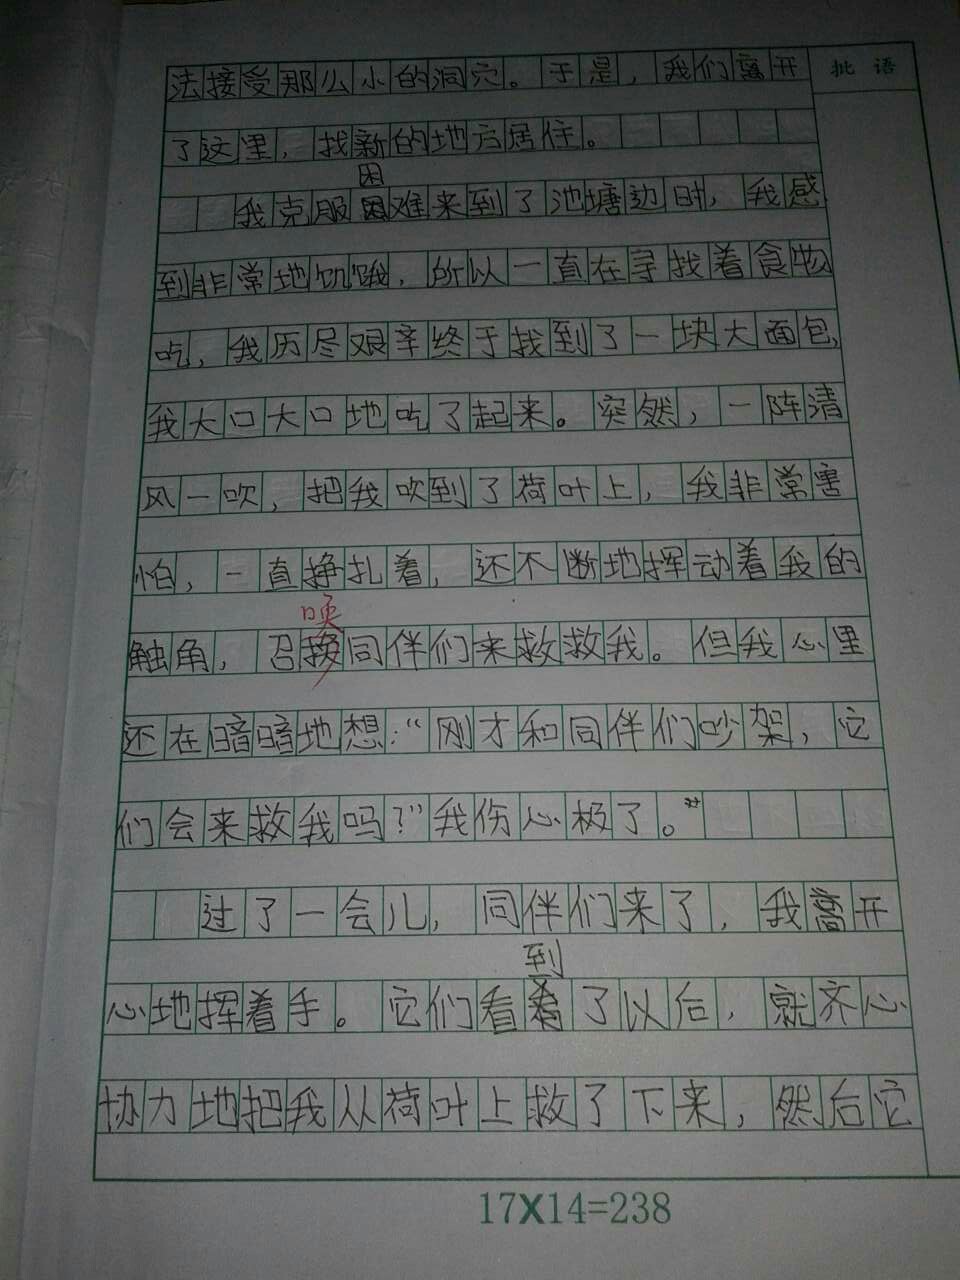 法接受那么小的洞穴。于是，我们离开
批语
了这里，找新的地方居住。
困
我克服困难来到了池塘边时，我感
到非常地饥饿，所以一直在寻找着食物
吃，我历尽艰辛终于找到了一块大面包，
我大口大口地吃了起来。突然，一阵清
风一吹，把我吹到了荷叶上，我非常害
怕，一直挣扎着，还不断地挥动着我的
唤
触角，召换同伴们来救救我。但我心里
还在暗暗地想：“刚才和同伴们吵架，它
们会来救我吗？”我伤心极了。
过了一会儿，同伴们来了，我高开
到
心地挥着手。它们看着了以后，就齐心
协力地把我从荷叶上救了下来，然后它
17X14=238